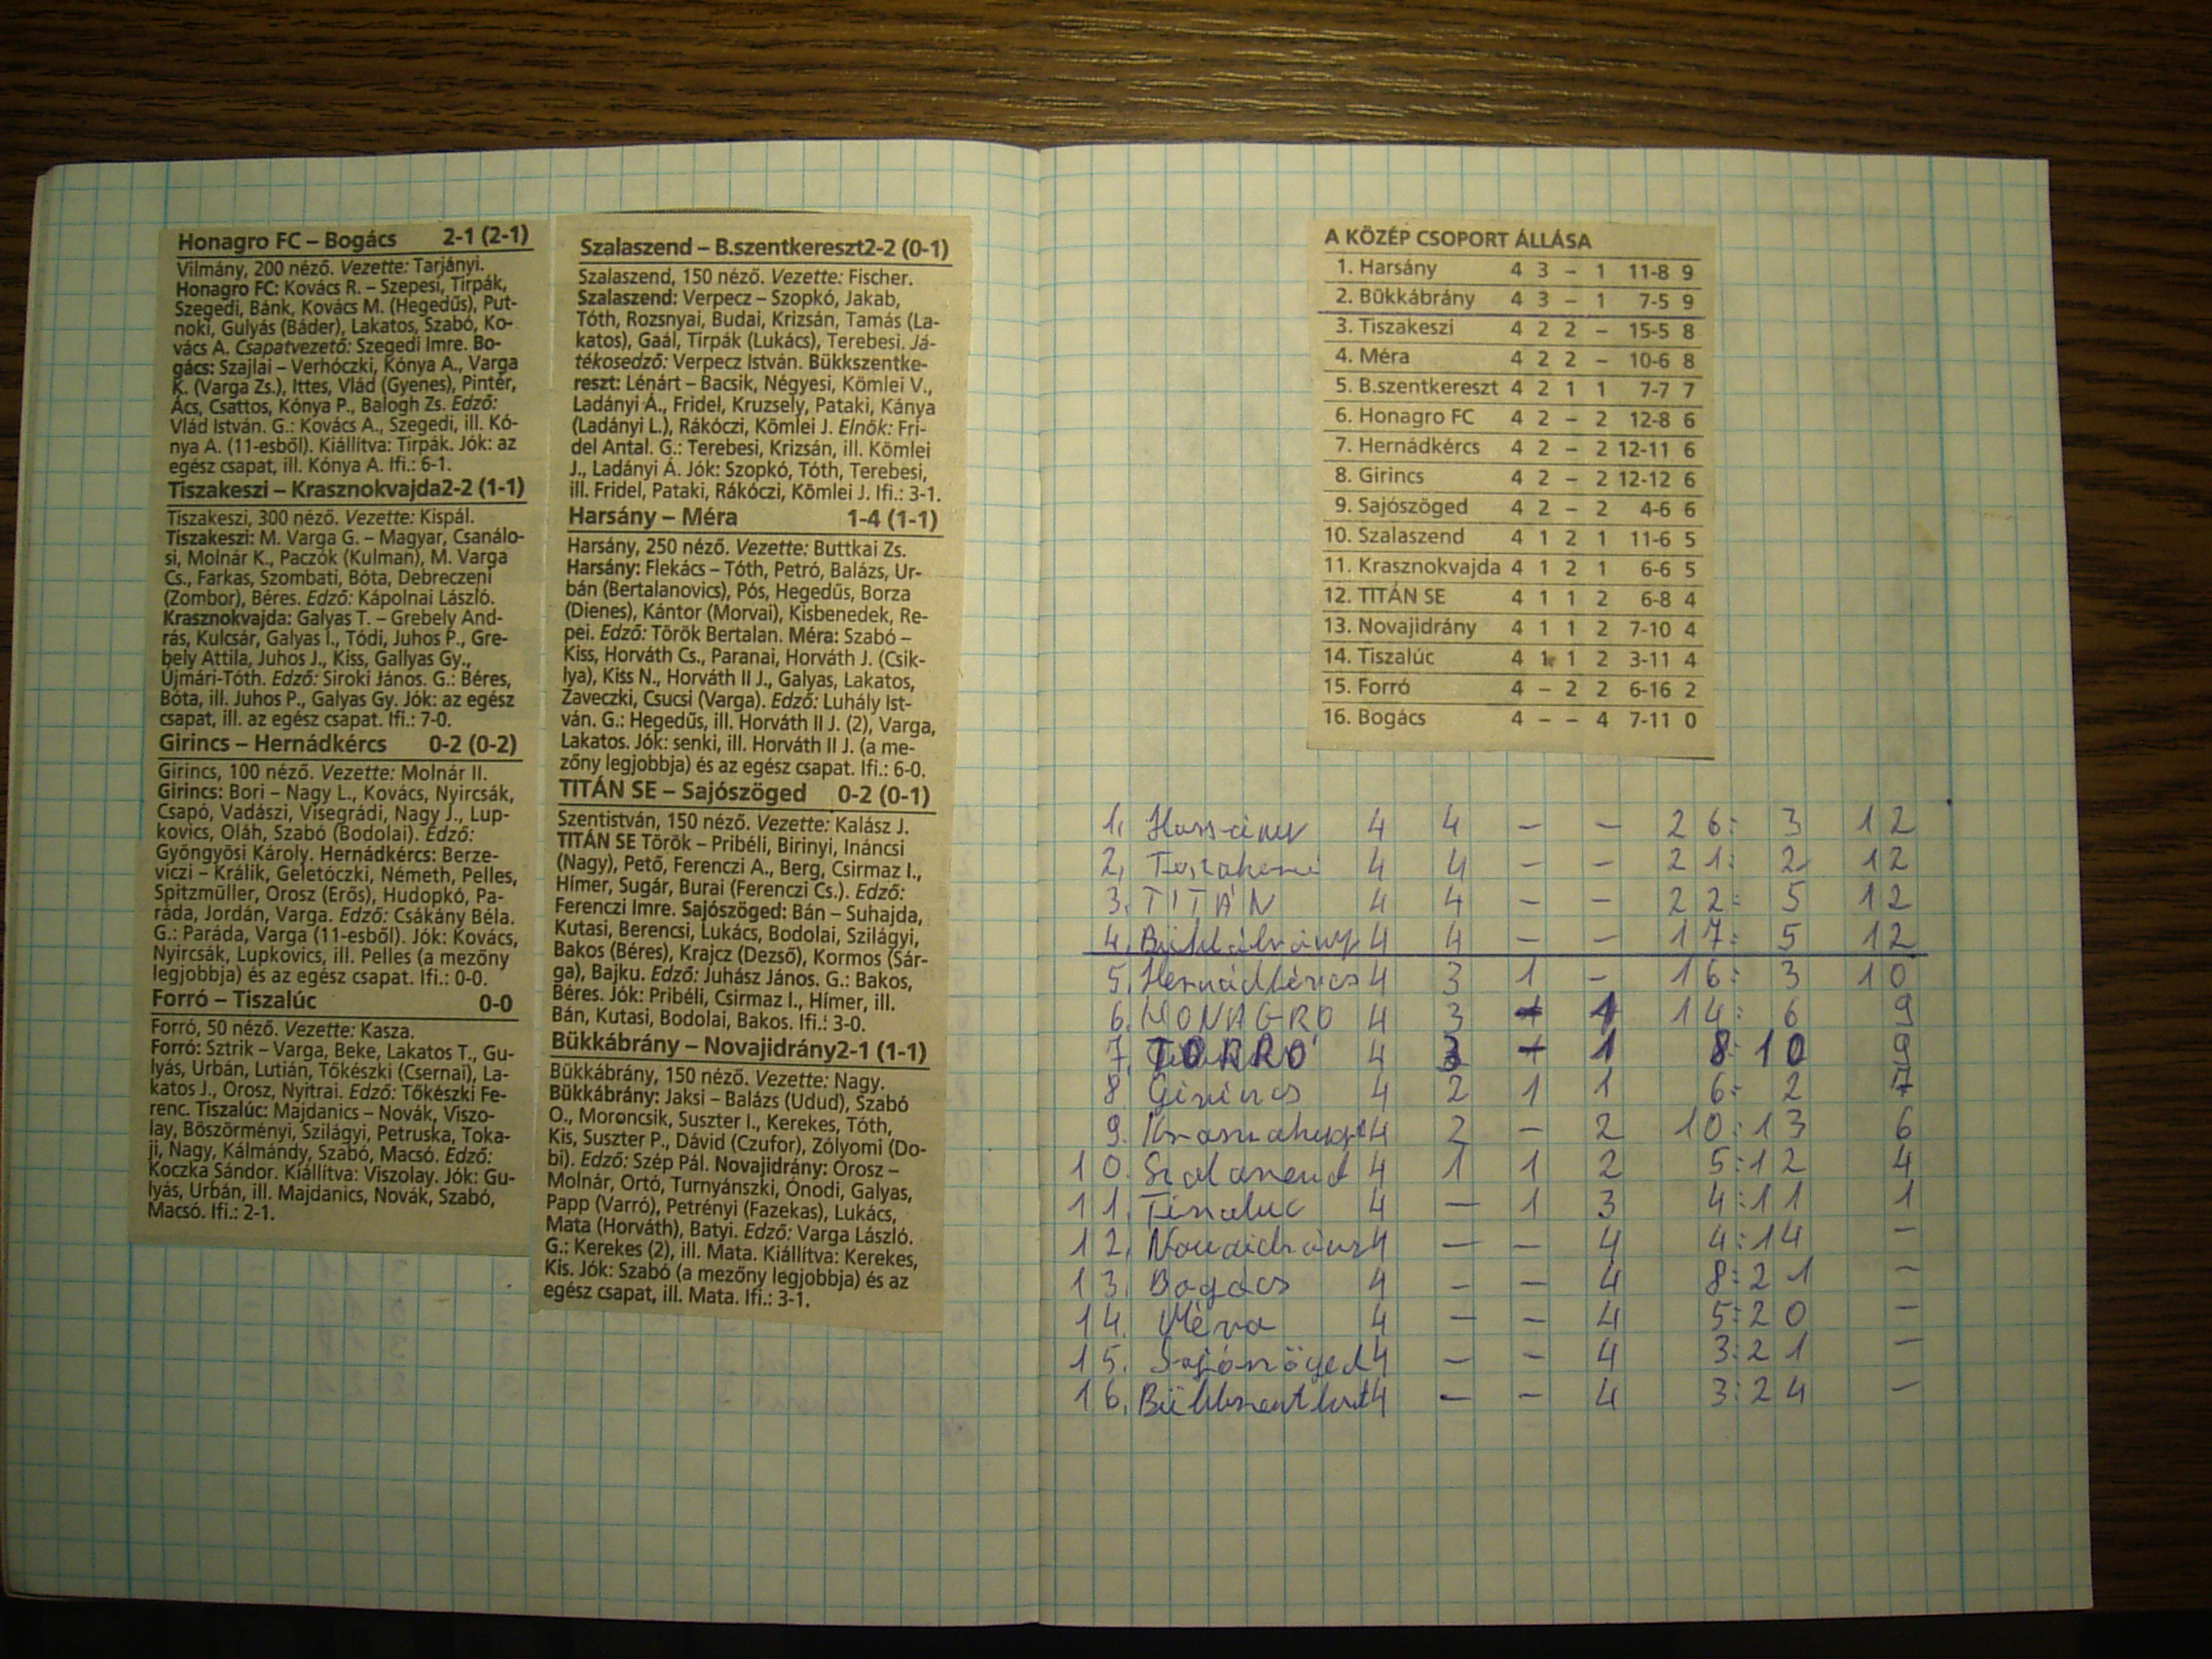 Honagro FC – Bogács 2-1 (2-1)
Vilmány, 200 néző. Vezette: Tarjányi.
Honagro FC: Kovács R. – Szepesi, Tirpák,
Szegedi, Bánk, Kovács M. (Hegedűs), Put-
noki, Gulyás (Báder), Lakatos, Szabó, Ko-
vács A. Csapatvezető: Szegedi Imre. Bo-
gács: Szajlai – Verhóczki, Kónya A., Varga
K. (Varga Zs.), Ittes, Vlád (Gyenes), Pintér,
Ács, Csattos, Kónya P., Balogh Zs. Edző:
Vlád István. G.: Kovács A., Szegedi, ill. Kó-
nya A. (11-esből). Kiállítva: Tirpák. Jók: az
egész csapat, ill. Kónya A. Ifi.: 6-1.
Tiszakeszi – Krasznokvajda2-2 (1-1)
Tiszakeszi, 300 néző. Vezette: Kispál.
Tiszakeszi: M. Varga G. – Magyar, Csanálo-
si, Molnár K., Paczók (Kulman), M. Varga
Cs., Farkas, Szombati, Bóta, Debreczeni
(Zombor), Béres. Edző: Kápolnai László.
Krasznokvajda: Galyas T. – Grebely And-
rás, Kulcsár, Galyas I., Tódi, Juhos P., Gre-
bely Attila, Juhos J., Kiss, Gallyas Gy.,
Újmári-Tóth. Edző: Siroki János. G.: Béres,
Bóta, ill. Juhos P., Galyas Gy. Jók: az egész
csapat, ill. az egész csapat. Ifi.: 7-0.
Girincs – Hernádkércs 0-2 (0-2)
Girincs, 100 néző. Vezette: Molnár II.
Girincs: Bori – Nagy L., Kovács, Nyircsák,
Csapó, Vadászi, Visegrádi, Nagy J., Lup-
kovics, Oláh, Szabó (Bodolai). Edző:
Gyöngyösi Károly. Hernádkércs: Berze-
viczi – Králik, Geletóczki, Németh, Pelles,
Spitzmüller, Orosz (Erős), Hudopkó, Pa-
ráda, Jordán, Varga. Edző: Csákány Béla.
G.: Paráda, Varga (11-esből). Jók: Kovács,
Nyircsák, Lupkovics, ill. Pelles (a mezőny
legjobbja) és az egész csapat. Ifi.: 0-0.
Forró – Tiszalúc 0-0
Forró, 50 néző. Vezette: Kasza.
Forró: Sztrik – Varga, Beke, Lakatos T., Gu-
lyás, Urbán, Lutián, Tőkészki (Csernai), La-
katos J., Orosz, Nyitrai. Edző: Tőkészki Fe-
renc. Tiszalúc: Majdanics – Novák, Viszo-
lay, Böszörményi, Szilágyi, Petruska, Toka-
ji, Nagy, Kálmándy, Szabó, Macsó. Edző:
Koczka Sándor. Kiállítva: Viszolay. Jók: Gu-
lyás, Urbán, ill. Majdanics, Novák, Szabó,
Macsó. Ifi.: 2-1.
Szalaszend – B.szentkereszt2-2 (0-1)
Szalaszend, 150 néző. Vezette: Fischer.
Szalaszend: Verpecz – Szopkó, Jakab,
Tóth, Rozsnyai, Budai, Krizsán, Tamás (La-
katos), Gaál, Tirpák (Lukács), Terebesi. Já-
tékosedző: Verpecz István. Bükkszentke-
reszt: Lénárt – Bacsik, Négyesi, Kömlei V.,
Ladányi Á., Fridel, Kruzsely, Pataki, Kánya
(Ladányi L.), Rákóczi, Kömlei J. Elnök: Fri-
del Antal. G.: Terebesi, Krizsán, ill. Kömlei
J., Ladányi Á. Jók: Szopkó, Tóth, Terebesi,
ill. Fridel, Pataki, Rákóczi, Kömlei J. Ifi.: 3-1.
Harsány – Méra 1-4 (1-1)
Harsány, 250 néző. Vezette: Buttkai Zs.
Harsány: Flekács – Tóth, Petró, Balázs, Ur-
bán (Bertalanovics), Pós, Hegedűs, Borza
(Dienes), Kántor (Morvai), Kisbenedek, Re-
pei. Edző: Török Bertalan. Méra: Szabó –
Kiss, Horváth Cs., Paranai, Horváth J. (Csik-
lya), Kiss N., Horváth II J., Galyas, Lakatos,
Zaveczki, Csucsi (Varga). Edző: Luhály Ist-
ván. G.: Hegedűs, ill. Horváth II J. (2), Varga,
Lakatos. Jók: senki, ill. Horváth II J. (a me-
zőny legjobbja) és az egész csapat. Ifi.: 6-0.
TITÁN SE – Sajószöged 0-2 (0-1)
Szentistván, 150 néző. Vezette: Kalász J.
TITÁN SE Török – Pribéli, Birinyi, Ináncsi
(Nagy), Pető, Ferenczi A., Berg, Csirmaz I.,
Hímer, Sugár, Burai (Ferenczi Cs.). Edző:
Ferenczi Imre. Sajószöged: Bán – Suhajda,
Kutasi, Berencsi, Lukács, Bodolai, Szilágyi,
Bakos (Béres), Krajcz (Dezső), Kormos (Sár-
ga), Bajku. Edző: Juhász János. G.: Bakos,
Béres. Jók: Pribéli, Csirmaz I., Hímer, ill.
Bán, Kutasi, Bodolai, Bakos. Ifi.: 3-0.
Bükkábrány – Novajidrány2-1 (1-1)
Bükkábrány, 150 néző. Vezette: Nagy.
Bükkábrány: Jaksi – Balázs (Udud), Szabó
O., Moroncsik, Suszter I., Kerekes, Tóth,
Kis, Suszter P., Dávid (Czufor), Zólyomi (Do-
bi). Edző: Szép Pál. Novajidrány: Orosz –
Molnár, Ortó, Turnyánszki, Ónodi, Galyas,
Papp (Varró), Petrényi (Fazekas), Lukács,
Mata (Horváth), Batyi. Edző: Varga László.
G.: Kerekes (2), ill. Mata. Kiállítva: Kerekes,
Kis. Jók: Szabó (a mezőny legjobbja) és az
egész csapat, ill. Mata. Ifi.: 3-1.
A KÖZÉP CSOPORT ÁLLÁSA
1. Harsány 4 3 – 1 11-8 9
2. Bükkábrány 4 3 – 1 7-5 9
3. Tiszakeszi 4 2 2 – 15-5 8
4. Méra 4 2 2 – 10-6 8
5. B.szentkereszt 4 2 1 1 7-7 7
6. Honagro FC 4 2 – 2 12-8 6
7. Hernádkércs 4 2 – 2 12-11 6
8. Girincs 4 2 – 2 12-12 6
9. Sajószöged 4 2 – 2 4-6 6
10. Szalaszend 4 1 2 1 11-6 5
11. Krasznokvajda 4 1 2 1 6-6 5
12. TITÁN SE 4 1 1 2 6-8 4
13. Novajidrány 4 1 1 2 7-10 4
14. Tiszalúc 4 1 1 2 3-11 4
15. Forró 4 – 2 2 6-16 2
16. Bogács 4 – – 4 7-11 0
1. Harsány 4 4 – – 26: 3 12
2. Tiszakeszi 4 4 – – 21: 2 12
3. TITÁN 4 4 – – 22: 5 12
4. Bükkábrány 4 4 – – 17: 5 12
5. Hernádkércs 4 3 1 – 16: 3 10
6. HONAGRO 4 3 – 1 14: 6 9
7. FORRÓ 4 3 – 1 8:10 9
8 Girincs 4 2 1 1 6: 2 7
9. 4 2 – 2 10:13 6
10. Szalaszend 4 1 1 2 5:12 4
11. Tiszaluc 4 – 1 3 4:11 1
12. Novajidrány 4 – – 4 4:14 –
13. Bogács 4 – – 4 8:21 –
14. Méra 4 – – 4 5:20 –
15. Sajószöged 4 – – 4 3:21 –
16. 4 – – 4 3:24 –